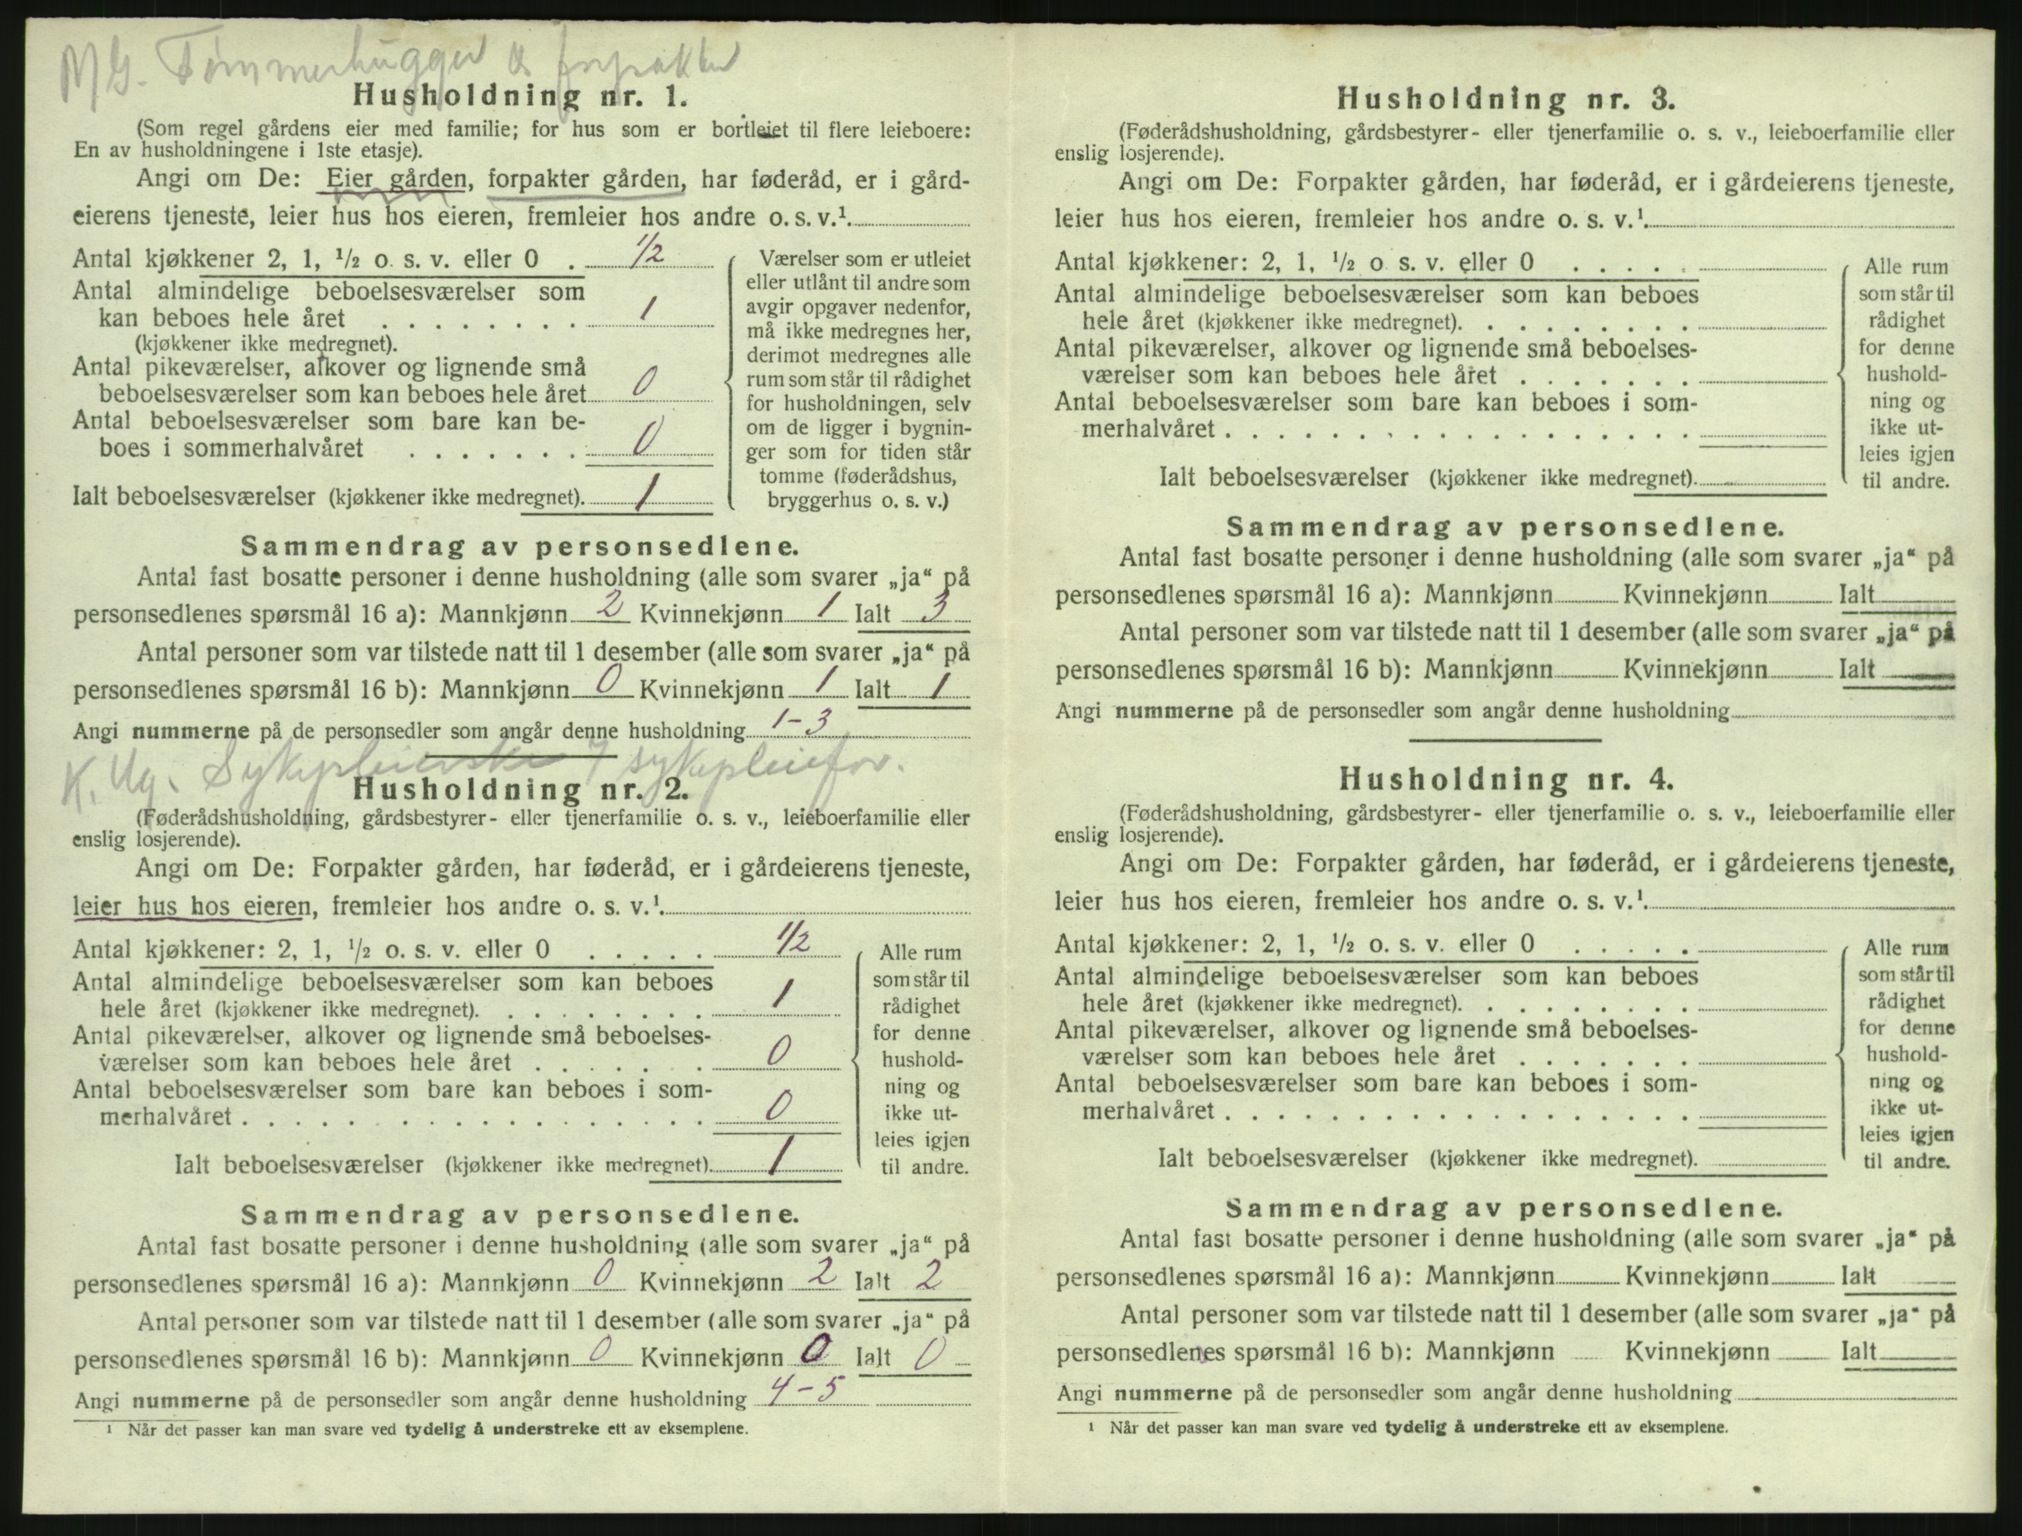 M G. Tømmerhugger & forpakter
Husholdning nr. 1.
(Som regel gårdens eier med familie; for hus som er bortleiet til flere leieboere:
En av husholdningene i 1ste etasje).
Angi om De: Eier gården, forpakter gården, har føderåd, er i gård-
eierens tjeneste, leier hus hos eieren, fremleier hos andre o. s. v.¹
Antal kjøkkener 2, 1, ½ o. s. v. eller 0 . ½
Antal almindelige beboelsesværelser som
kan beboes hele året . . . . . . . . 1
(kjøkkener ikke medregnet).
Antal pikeværelser, alkover og lignende små
beboelsesværelser som kan beboes hele året 0
Antal beboelsesværelser som bare kan be-
boes i sommerhalvåret . . . . . . . 0
Ialt beboelsesværelser (kjøkkener ikke medregnet). 1
Værelser som er utleiet
eller utlånt til andre som
avgir opgaver nedenfor,
må ikke medregnes her,
derimot medregnes alle
rum som står til rådighet
for husholdningen, selv
om de ligger i bygnin-
ger som for tiden står
tomme (føderådshus,
bryggerhus o. s. v.)
Sammendrag av personsedlene.
Antal fast bosatte personer i denne husholdning (alle som svarer „ja“ på
personsedlenes spørsmål 16 a): Mannkjønn 2 Kvinnekjønn 1 Ialt 3
Antal personer som var tilstede natt til 1 desember (alle som svarer „ja“ på
personsedlenes spørsmål 16 b): Mannkjønn 0 Kvinnekjønn 1 Ialt 1
Angi nummerne på de personsedler som angår denne husholdning 1-3
K. Ug. Sykepleierske / sykepleiefor.
Husholdning nr. 2.
(Føderådshusholdning, gårdsbestyrer- eller tjenerfamilie o. s. v., leieboerfamilie eller
enslig losjerende).
Angi om De: Forpakter gården, har føderåd, er i gårdeierens tjeneste,
leier hus hos eieren, fremleier hos andre o. s. v.¹
Antal kjøkkener: 2, 1, ½ o. s. v. eller 0 . . . . . ½
Antal almindelige beboelsesværelser som kan beboes
hele året (kjøkkener ikke medregnet). . . . . . . . . 1
Antal pikeværelser, alkover og lignende små beboelses-
værelser som kan beboes hele året . . . . . . . 0
Antal beboelsesværelser som bare kan beboes i som-
merhalvåret . . . . . . . . . . . . . . . . . . 0
Ialt beboelsesværelser (kjøkkener ikke medregnet). 1
Alle rum
som står til
rådighet
for denne
hushold-
ning og
ikke ut-
leies igjen
til andre.
Sammendrag av personsedlene.
Antal fast bosatte personer i denne husholdning (alle som svarer „ja“ på
personsedlenes spørsmål 16 a): Mannkjønn 0 Kvinnekjønn 2 Ialt 2
Antal personer som var tilstede natt til 1 desember (alle som svarer „ja“ på
personsedlenes spørsmål 16 b): Mannkjønn 0 Kvinnekjønn 0 Ialt 0
Angi nummerne på de personsedler som angår denne husholdning 4-5
¹ Når det passer kan man svare ved tydelig å understreke ett av eksemplene.
Husholdning nr. 3.
(Føderådshusholdning, gårdsbestyrer- eller tjenerfamilie o. s. v., leieboerfamilie eller
enslig losjerende).
Angi om De: Forpakter gården, har føderåd, er i gårdeierens tjeneste,
leier hus hos eieren, fremleier hos andre o. s. v.¹
Antal kjøkkener: 2, 1, ½ o s. v. eller 0 . . . . .
Antal almindelige beboelsesværelser som kan beboes
hele året (kjøkkener ikke medregnet). . . . . . . . .
Antal pikeværelser, alkover og lignende små beboelses-
værelser som kan beboes hele året . . . . . . .
Antal beboelsesværelser som bare kan beboes i som-
merhalvåret . . . . . . . . . . . . . . . . . .
Ialt beboelsesværelser (kjøkkener ikke medregnet).
Alle rum
som står til
rådighet
for denne
hushold-
ning og
ikke ut-
leies igjen
til andre.
Sammendrag av personsedlene.
Antal fast bosatte personer i denne husholdning (alle som svarer „ja“ på
personsedlenes spørsmål 16 a): Mannkjønn Kvinnekjønn Ialt
Antal personer som var tilstede natt til 1 desember (alle som svarer „ja“ på
personsedlenes spørsmål 16 b): Mannkjønn Kvinnekjønn Ialt
Angi nummerne på de personsedler som angår denne husholdning
Husholdning nr. 4.
(Føderådshusholdning, gårdsbestyrer- eller tjenerfamilie o. s. v., leieboerfamilie eller
enslig losjerende).
Angi om De: Forpakter gården, har føderåd, er i gårdeierens tjeneste,
leier hus hos eieren, fremleier hos andre o. s. v.¹
Antal kjøkkener: 2, 1, ½ o. s. v. eller 0 . . . . .
Antal almindelige beboelsesværelser som kan beboes
hele året (kjøkkener ikke medregnet). . . . . . . . .
Antal pikeværelser, alkover og lignende små beboelses-
værelser som kan beboes hele året . . . . . . .
Antal beboelsesværelser som bare kan beboes i som-
merhalvåret . . . . . . . . . . . . . . . . . .
Ialt beboelsesværelser (kjøkkener ikke medregnet).
Alle rum
som står til
rådighet
for denne
hushold-
ning og
ikke ut-
leies igjen
til andre.
Sammendrag av personsedlene.
Antal fast bosatte personer i denne husholdning (alle som svarer „ja“ på
personsedlenes spørsmål 16 a): Mannkjønn Kvinnekjønn Ialt
Antal personer som var tilstede natt til 1 desember (alle som svarer „ja“ på
personsedlenes spørsmål 16 b): Mannkjønn Kvinnekjønn Ialt
Angi nummerne på de personsedler som angår denne husholdning
¹ Når det passer kan man svare ved tydelig å understreke ett av eksemplene.